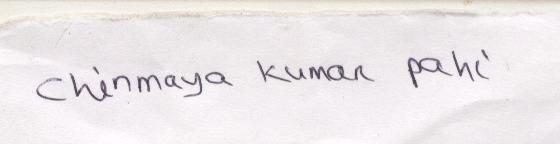 Chinmaya kumar pahi